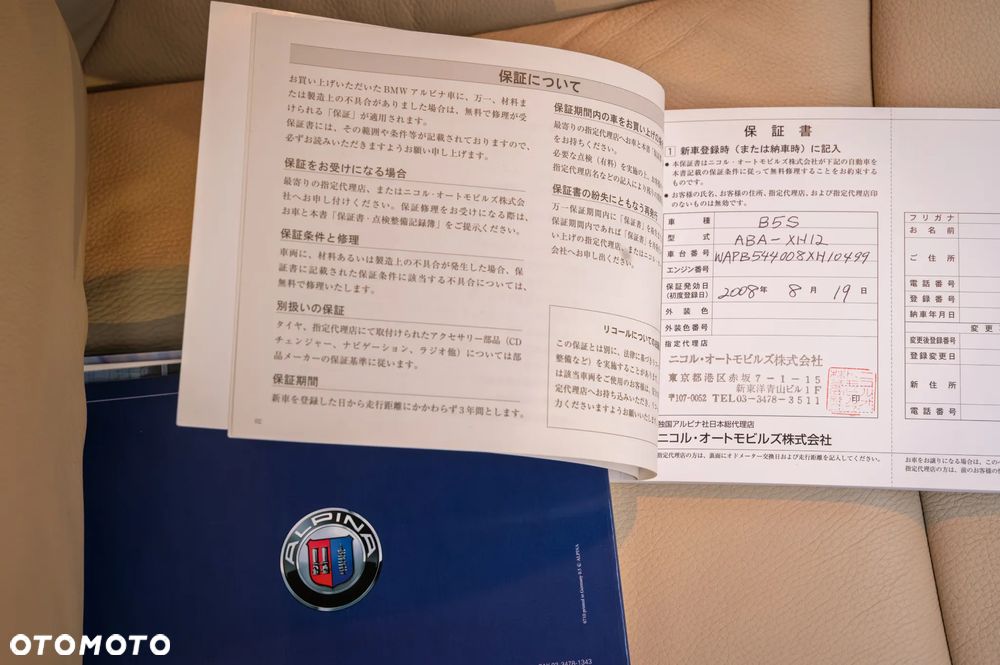 保証について
お買い上げいただいたBMWアルピナ車に、万一、材料ま
たは製造上の不具合がありました場合は、無料で修理が受
けられる「保証」が適用されます。
保証書には、その範囲や条件等が記載されておりますので、
必ずお読みいただきますようお願い申し上げます。
保証をお受けになる場合
最寄りの指定代理店、またはニコル・オートモビルズ株式会
社へお申し付けください。保証修理をお受けになる際は、
お車と本書「保証書・点検整備記録簿」をご提示ください。
保証条件と修理
車両に、材料あるいは製造上の不具合が発生した場合、保
証書に記載された保証条件に該当する不具合については、
無料で修理いたします。
別扱いの保証
タイヤ、指定代理店にて取付けられたアクセサリー部品(CD
チェンジャー、ナビゲーション、ラジオ他)については部
品メーカーの保証基準に従います。
保証期間
新車を登録した日から走行距離にかかわらず3年間とします。
02
保証期間内の車をお買い上げの
最寄りの指定代理店へお車と本書「
をお持ちください。
必要な点検(有料)を実施の上、お
指定代理店名などの記入により残りの
保証書の紛失にともなう再発行
万一保証期間内に「保証書」を
保証期間内であれば「保証書」を
い上げの指定代理店、またはニコル・オート
会社へお申し出ください。
リコールについての
この保証とは別に、法律に基づき
整備など)を実施することがあり
は該当車両をご使用のお客様は、
定代理店へお持ち込みいただき、
力くださいますようお願いいたします
保証書
1 新車登録時(または納車時)に記入
● 本保証書はニコル・オートモビルズ株式会社が下記の自動車を
本書記載の保証条件に従って無料修理することをお約束する
ものです。
● お客様の氏名、お客様の住所、指定代理店、および指定代理店印
のないものは無効です。
車種 B5S
型式 ABA-XH12
車台番号 WAPB544008XH10499
エンジン番号
保証発効日
(初度登録日) 2008年 8月 19日
外装色
外装色番号
指定代理店
ニコル・オートモビルズ株式会社
東京都港区赤坂7-1-15
新東洋青山ビル1F
〒107-0052 TEL03-3478-3511
印
独国アルピナ社日本総代理店
ニコル・オートモビルズ株式会社
指定代理店の方は、裏面にオドメーター交換日および走行距離を記入してください。
フリガナ
お名前
ご住所
電話番号
登録番号
納車年月日
変更
変更後登録番号
登録変更日
新住所
電話番号
お車をお譲りになる場合は、この
指定代理店の方は、前のお客様の
ALPINA
OTOMOTO
03-3478-1343